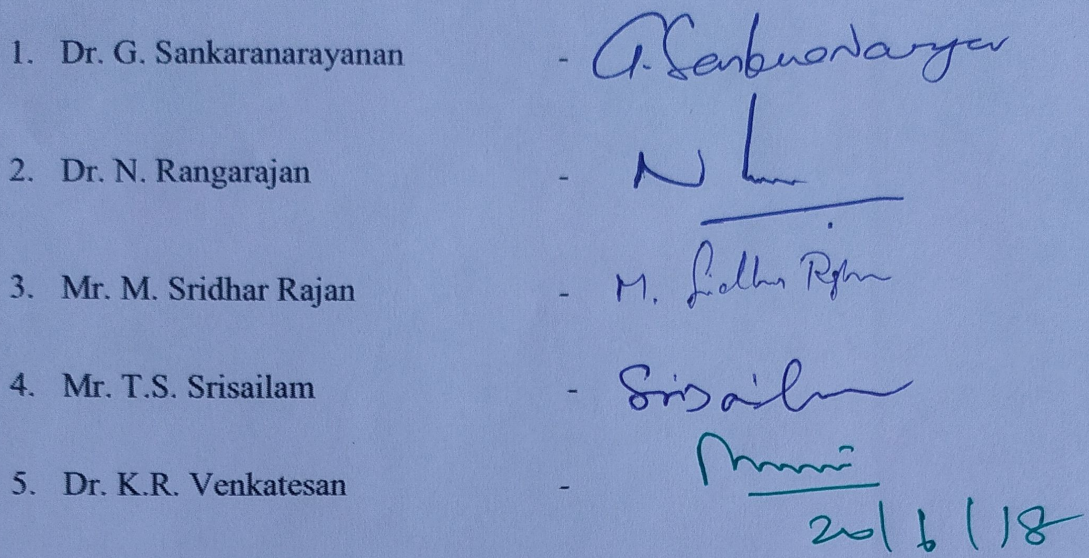 1. Dr. G. Sankaranarayanan - G. Sankaranarayan
2. Dr. N. Rangarajan - N
3. Mr. M. Sridhar Rajan - M. Sridhar Rajan
4. Mr. T.S. Srisailam - Srisailam
5. Dr. K.R. Venkatesan -
20/6/18